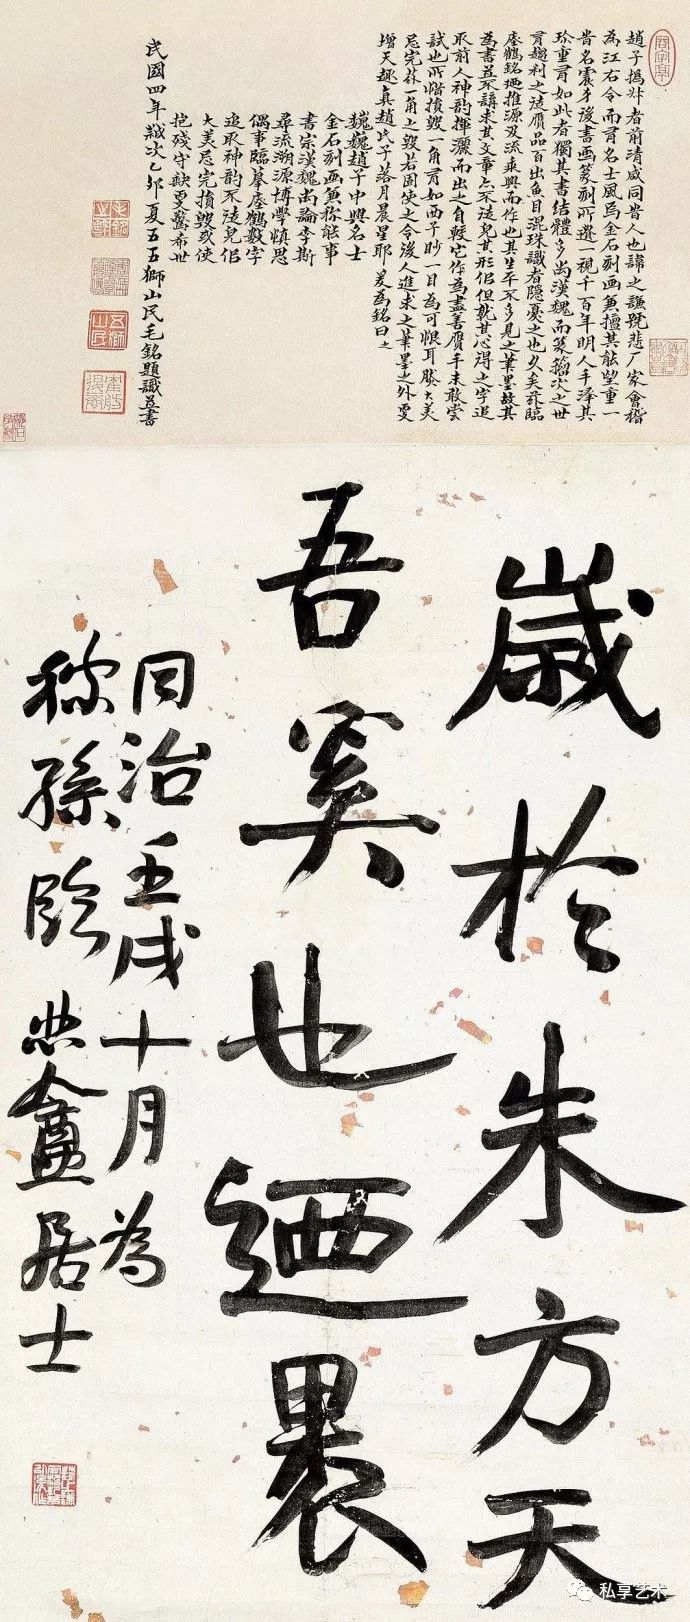 趙子撝叔者前清咸同昔人也諱之謙號悲厂家會稽
為江右令而有名士風焉金石刻画兼擅其能望重一
昔名震身後書画篆刻所遺一視千百年明人手澤其
珍重有如此者獨其書結體多尚漢魏而篆籀次之世
有趨利之徒贋品百出魚目混珠識者隱憂之也久矣茲臨
瘞鶴銘迺推源及流乘興而作也其生平不多見之筆墨故其
為書並不講求其文章亦不徒皃其形侣但就其心得之字追
取前人神韵揮灑而出之自較它作為盡善贋手未敢嘗
試也所惜損毀一角有如西子眇一目為可恨耳勝大美
忌完茲一角之毀若固使之令後人追求之筆墨之外更
增天趣真趙氏子落月晨星耶爰為銘曰
巍巍趙子中興名士
金石刻画兼称能事
書宗漢魏尚論李斯
尋流溯源博學慎思
偶事臨摹瘞鶴數字
追取神韵不徒皃侣
大美忌完損毀或使
抱残守缺更驚希世
民國四年歲次乙卯夏五五獅山民毛銘題識並書
五獅山民
歲於朱方天
吾奚也迺裹
同治壬戌十月為
稼孫臨 悲盦居士
私享艺术